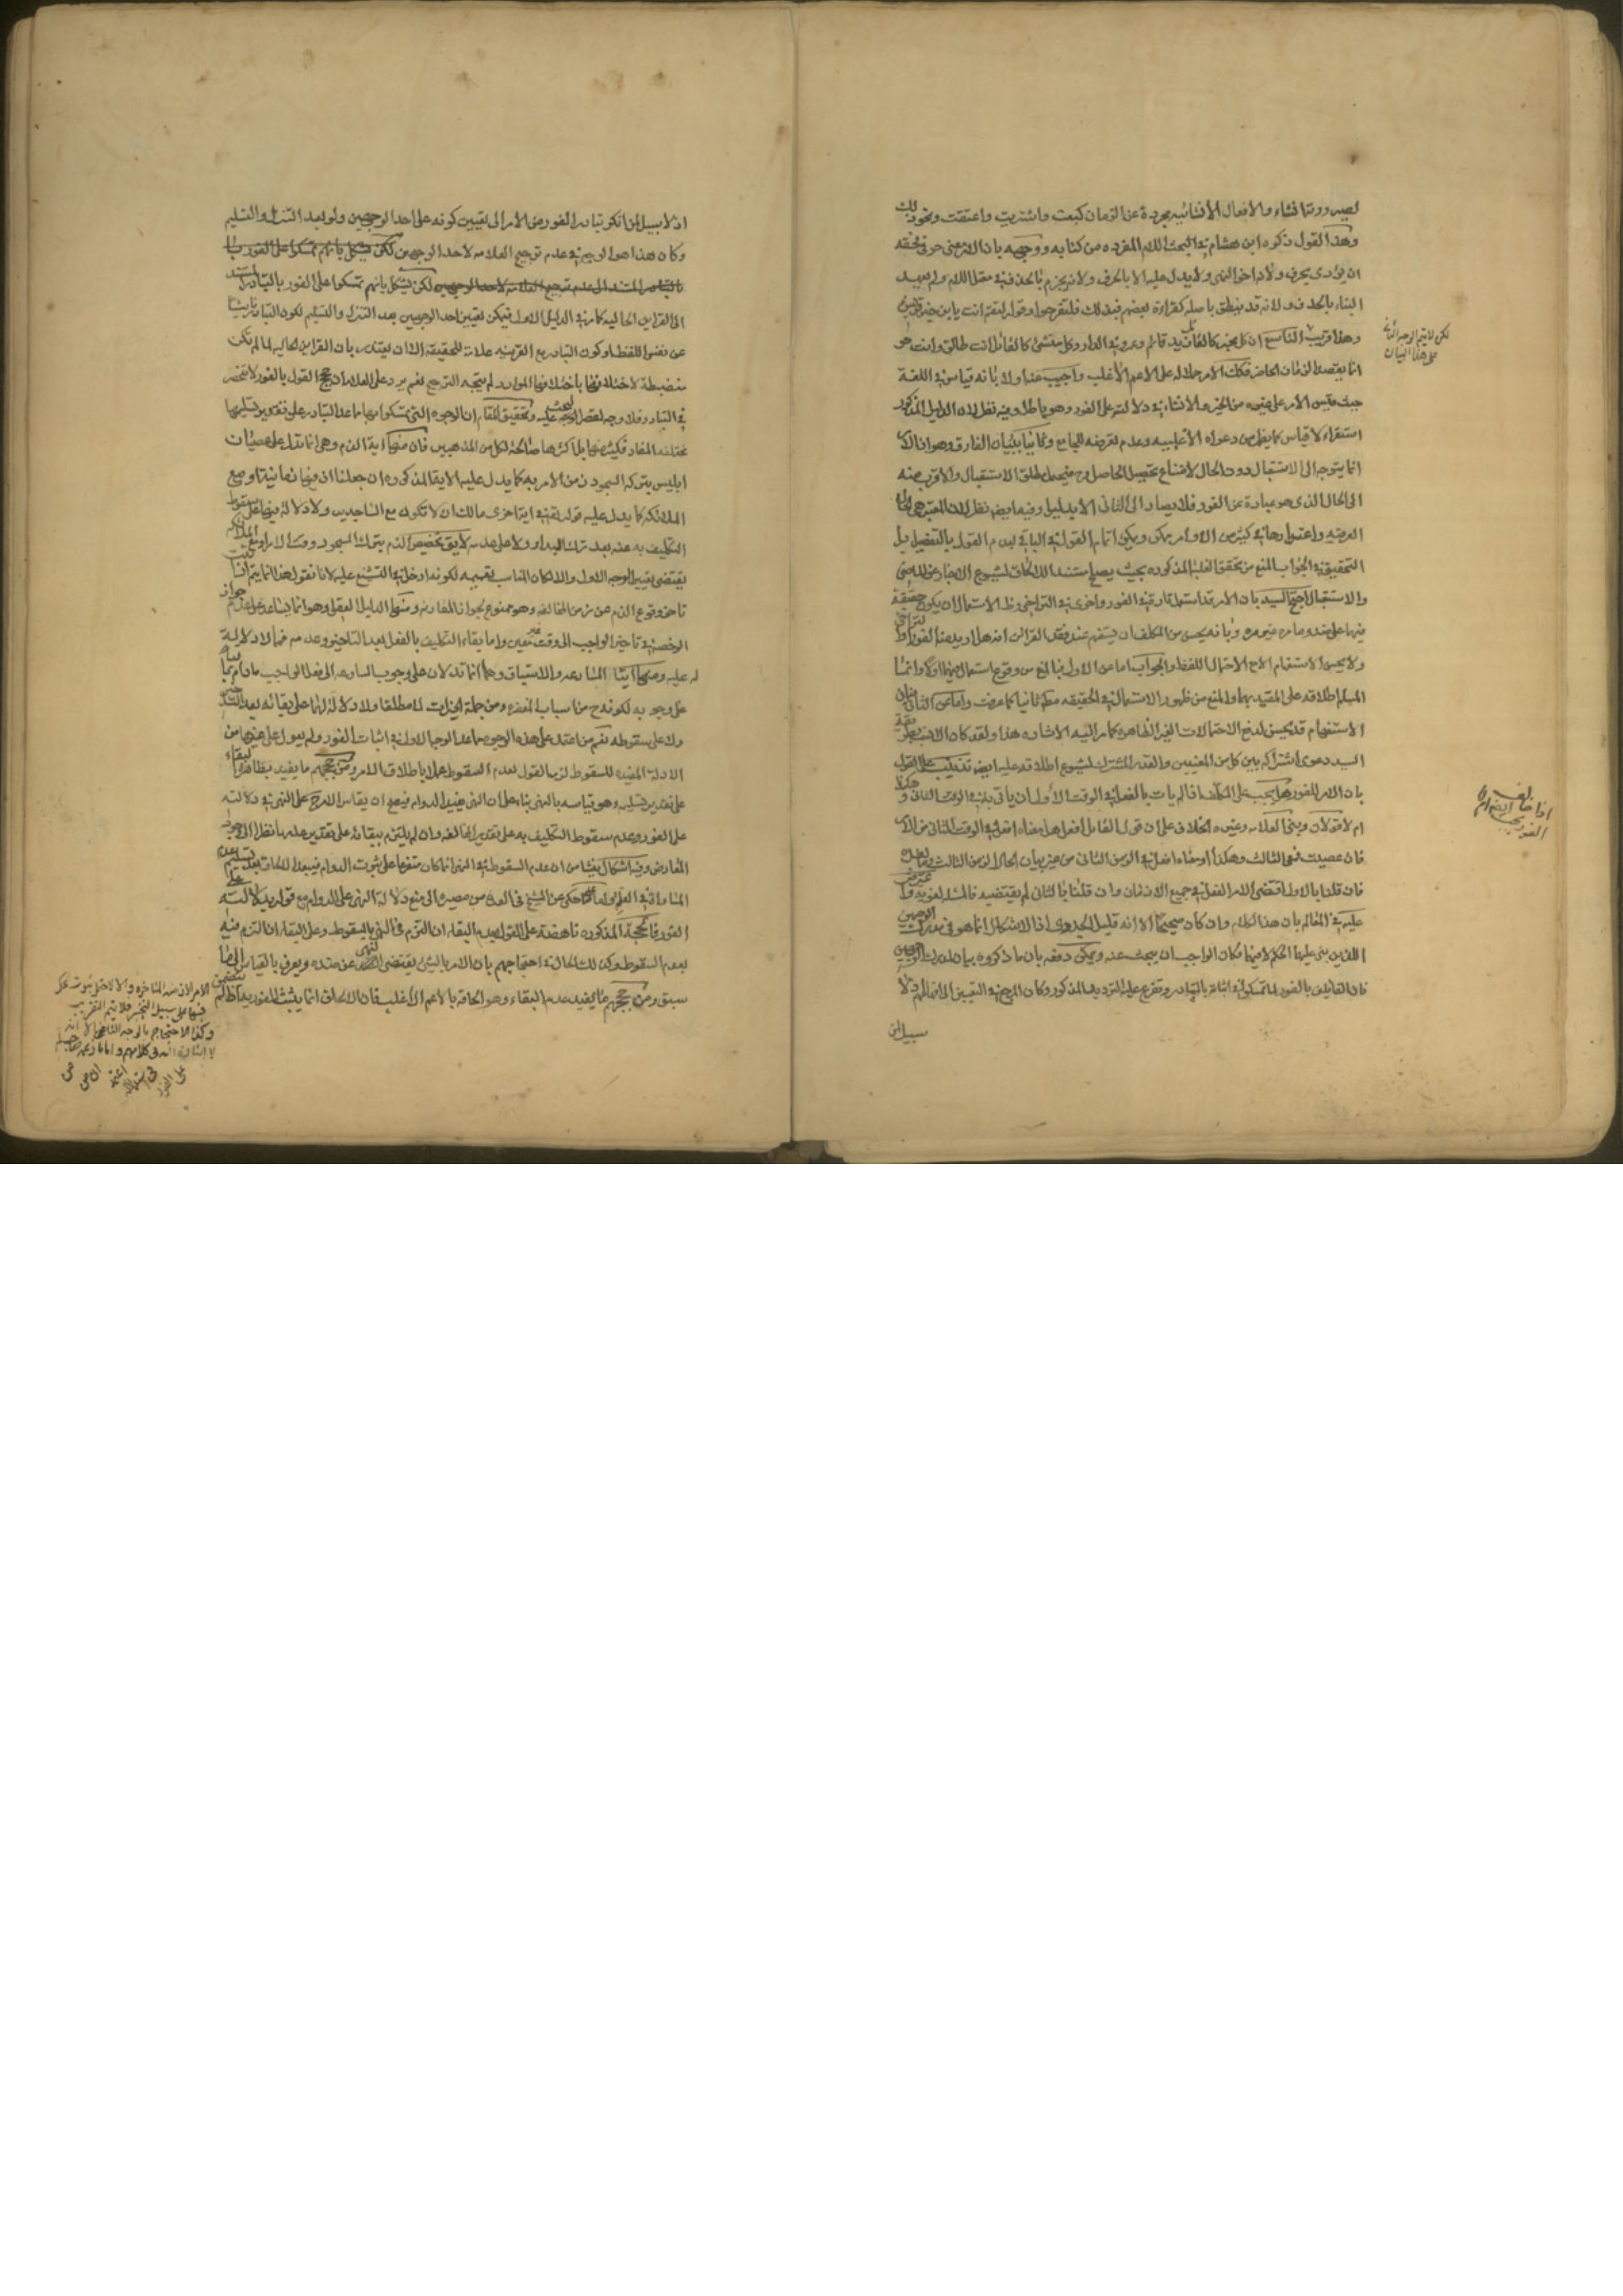 لصيرورتها انشاء والافعال الانشائية مجردة عن الزمان كبعت واشتريت واعتقت ونحو ذلك
وهذا القول ذكره ابن هشام في البحث اللام المفرده من كتابه ووجهه بان الامر معنى حرفي فحقه
ان يؤدى بحرف ولانه اخو النهى ولا يدل عليه الا بالحرف ولانه يجزم بالحذف في مثل الامر ولم يعهد
البناء بالحذف ولانه قد ينطق باصله كقراءة بعضهم فبذلك فلتفرحوا وقوله لتقم انت يا ابن خير قريش
وهذا قريب التاسع ان كل مخبر كالقائل زيد قائم وعمرو في الدار وكل منشئ كالقائل انت طالق وانت حر
انما يقصد الزمان الحاضر فكذلك الامر حملا له على الاعم الاغلب واجيب عنه اولا بانه قياس في اللغة
حيث قيس الامر على غيره من الخبر والانشاء في دلالته على الفور وهو باطل وفيه نظر لان الدليل المذكور
استقراء لا قياس كما يظهر من دعواه الأغلبيه وعدم تعرضه للجامع وثانيا ببيان الفارق وهو ان الامر
انما يتوجه الى الاستقبال دون الحال لامتناع تحصيل الحاصل وح فيحتمل مطلق الاستقبال والاقرب منه
الى الحال الذى هو عبارة عن الفور فلا يصار الى الثانى الا بدليل وفيه ايضا نظر لان المعتبر هو الحال
العرفيه واعتبارها في كثير من الاوامر ممكن ويمكن اتمام القول في الباقى بعدم القول بالتفصيل بل
التحقيق في الجواب المنع من تحقق الغلبة المذكوره بحيث يصلح مستندا للالحاق لشيوع الاخبار عن الماضى
والاستقبال احتج السيد بان الامر قد استعمل تارة في الفور واخرى في التراخى وظ الاستعمال ان يكون حقيقة
فيهما على ضد ما مر غير مره وبانه يحسن من المكلف ان يستفهم عند فقد القرائن انه هل اريد منه الفور او التراخى
ولا يحسن الاستفهام الا مع الاحتمال اللفظ والجواب اما عن الاول فبالمنع من وقوع استعماله فيهما اولا وانما
المسلم اطلاقه على المقيد بهما والمنع من ظهور الاستعمال في الحقيقه مطلقا ثانيا كما عرفت واما عن الثانى فبان
الاستفهام قد يحسن لدفع الاحتمالات الغير الظاهره كما مر اليه الاشاره هذا ولقد كان الانسب بطريقة
السيد دعوى اشتراكه بين كل من المعنيين والقدر المشترك لشيوع اطلاقه عليه ايضا تذنيب على القول
بان الامر للفور هل يجب على المكلف اذا لم يات بالفعل في الوقت الأول ان ياتى به في الوقت الثانى وهكذا
ام لا قولان وبنى العلامه وغيره الخلاف على ان قول القائل افعل هل معناه افعل في الوقت الثانى من الامر
فان عصيت ففى الثالث وهكذا او معناه افعل في الزمن الثانى من غير بيان الحال الزمن الثالث وما بعده
فان قلنا بالاول اقتضى الامر الفعل في جميع الازمان وان قلنا بالثانى لم يقتضيه فالمسئلة لغويه واعترض
عليه في المعالم بان هذا الكلام وان كان صحيحا الا انه قليل الجدوى اذ الاشكال انما هو في مدرك الوجهين
اللذين بنى عليهما الحكم لا فيهما فكان الواجب ان يبحث عنه ويمكن دفعه بان ما ذكروه بيان لمدرك الوجهين
فان القائلين بالفور لما تمسكوا في اثباته بالتبادر وتفرع عليه الترديد المذكور وكان المرجع في التعيين الى افهامهم ولا
سبيل لمن
لكن لا يتم الوجه الثانى
على هذا البيان
اذا خالف
الفور يجب ايضا
اذ لا سبيل لمن انكر تبادر الفور من الامر الى تعيين كونه على احد الوجهين ولو بعد التنزل والتسليم
وكان هذا هو الوجه في عدم ترجيح العلامه لاحد الوجهين لكن يشكل بانهم تمسكوا على الفور
لكن يشكل بانهم تمسكوا على الفور بالتبادر المستند
الى القراين الحاليه كما مر في الدليل الاول فيمكن تعيين احد الوجهين بعد التنزل والتسليم لكون التبادر ناشئا
عن نفس اللفظ او كون التبادر مع القرينه علامت للحقيقة الا ان يعتذر بان القراين الحاليه لما لم تكن
منضبطة لاختلافها باختلاف الموارد لم يتجه الترجيح نعم يرد على العلامه ان حجج القول بالفور لا تنحصر
في التبادر فلا وجه لقصر البحث عليه وتحقيق المقام ان الوجوه التى تمسكوا بها ما عدا التبادر على تقدير تسليمها
مختلفه المفاد فكثير منها بل اكثرها صالحة لكل من المذهبين فان منها اية الذم وهى انما تدل على عصيان
ابليس بتركه السجود زمن الامر به كما يدل عليه الاية المذكوره ان جعلنا اذ فيها زمانية او مع
الملائكه كما يدل عليه قوله تعالى في اية اخرى مالك ان لا تكون مع الساجدين ولا دلالة فيها على سقوط
التكليف به عنه بعد ترك البدار ولا على عدمه لا يق تخصيص الذم بترك السجود وقت الامر او مع الملائكه
يقتضى تعيين الوجه الاول والا لكان المناسب تعميمه لكونه ادخل في التشنيع عليه لانا نقول هذا انما يتم اذا ثبت
تاخر وقوع الذم عن زمن المخالفه وهو ممنوع لجواز المقارنه ومنها الدليل العقلى وهو انما يساعد على عدم جواز
الرخصة في تاخير الواجب الى وقت غير معين واما بقاء التكليف بالفعل بعد التاخير وعدمه فمما لا دلالة
له عليه ومنها ايتا المسارعه والاستباق وهما انما تدلان على وجوب المسارعه الى فعل الواجب مادام باقيا
على وجوبه لكونه ح من اسباب المغفره ومن جملة الخيرات لا مطلقا ولا دلالة لهما على بقائه بعد التاخير
ولا على سقوطه نعم من اعتمد على هذه الوجوه ما عدا الوجه الاول في اثبات الفور ولم يعول على غيرها من
الادلة المفيده للسقوط لزمه القول بعدم السقوط عملا باطلاق الامر ومن حججهم ما يفيد بظاهره البقاء
على تقدير تسليمه وهو قياسه بالنهى بناء على ان النهى يفيد الدوام فيصح ان يقاس الامر على النهى في دلالته
على الفور وعدم سقوط التكليف به على تقدير المخالفه وان لم يلتزم ببقائه على تقدير عدمها نظرا الى وجود
المعارض وفيه اشكال ينشا من ان عدم السقوط في النهى انما كان متفرعا على ثبوت الدوام فيبعد الالحاق بعد تسليم عدم
المساواة في العله ولما حكى عن الشيخ في العده من مصيره الى منع دلالة النهى على الدوام مع قوله بدلالته على
الفور فالحجة المذكوره ناهضة على القول بعدم البقاء ان التزم في النهى بالسقوط وعلى البقاء ان التزم فيه
بعدم السقوط وكذلك الحال في احتجاجهم بان الامر بالشئ يقتضى النهى عن ضده ويعرف بالقياس الى ما
سبق ومن حججهم ما يفيد عدم البقاء وهو الحاقه بالاعم الأغلب فان الالحاق انما يثبت الفوريه اذا لم
الامر الازمنه المتاخره والا لاختل بثبوت
فيها على سبيل التخيير فلا يتم التقريب
وكذا الاحتجاج بالوجه الثامن الا انه
لا اشارة اليه فى كلامهم واما